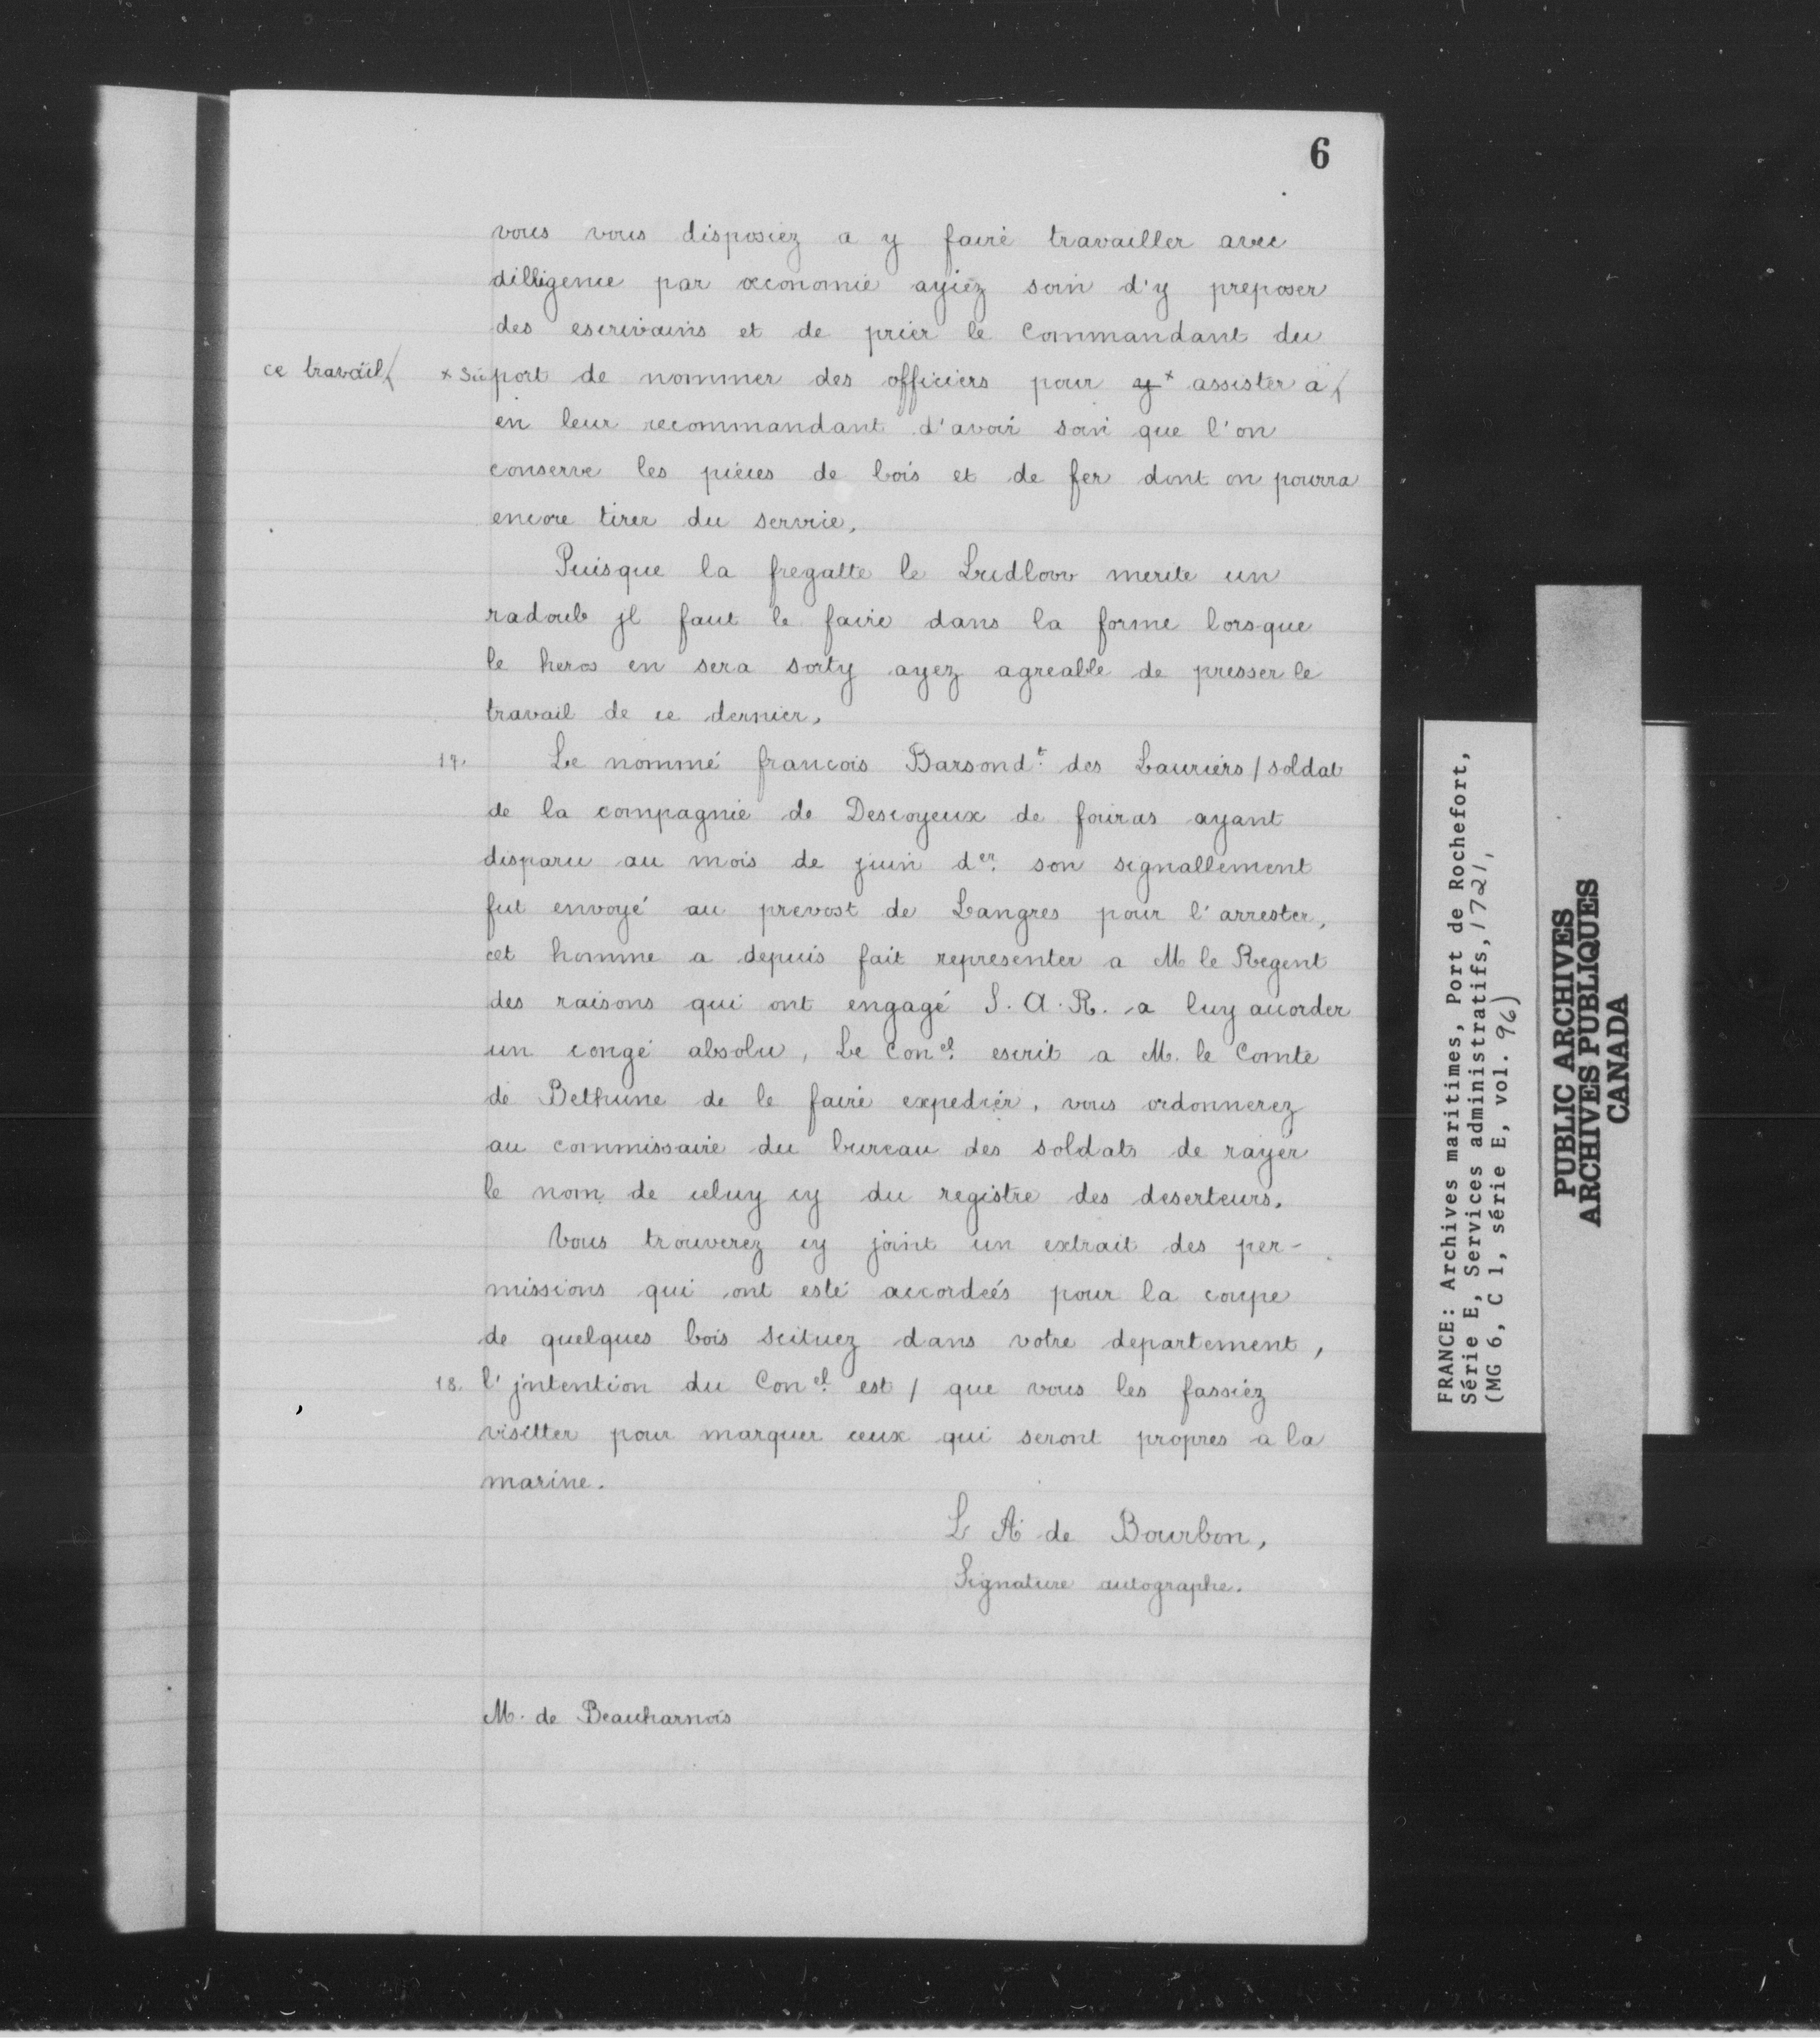 6
vous vous disposiez a y faire travailler avec
dilligence par œconomie ayiez soin d'y preposer
des escrivains et de prier le Commandant du
ce travail x Sic port de nommer des officiers pour y x assister a
en leur recommandant d'avoir soin que l'on
conserve les pièces de bois et de fer dont on pourra
encore tirer du service,
Puisque la fregatte le Ludlow merite un
radoub jl faut le faire dans la forme lorsque
le heros en sera sorty ayez agreable de presser le
travail de ce dernier,
17. Le nommé francois Barson dt. des Lauriers / soldat
de la compagnie de Descoyeux de fouras ayant
disparu au mois de juin der. son signallement
fut envoyé au prevost de Langres pour l'arrester,
cet homme a depuis fait representer a M le Regent
des raisons qui ont engagé S. A. R. a luy accorder
un congé absolu, Le Conel. escrit a M. le Comte
de Bethune de le faire expedier, vous ordonnerez
au commissaire du bureau des soldats de rayer
le nom de celuy cy du registre des deserteurs.
Vous trouverez cy joint un extrait des per-
missions qui ont esté accordées pour la coupe
de quelques bois scituez dans votre departement,
18. l'jntention du Conel. est / que vous les fassiez
visitter pour marquer ceux qui seront propres a la
marine.
L A de Bourbon,
Signature autographe.
M. de Beauharnois
FRANCE: Archives maritimes, Port de Rochefort,
Série E, Services administratifs, 1721,
(MG 6, C 1, série E, vol. 96)
PUBLIC ARCHIVES
ARCHIVES PUBLIQUES
CANADA